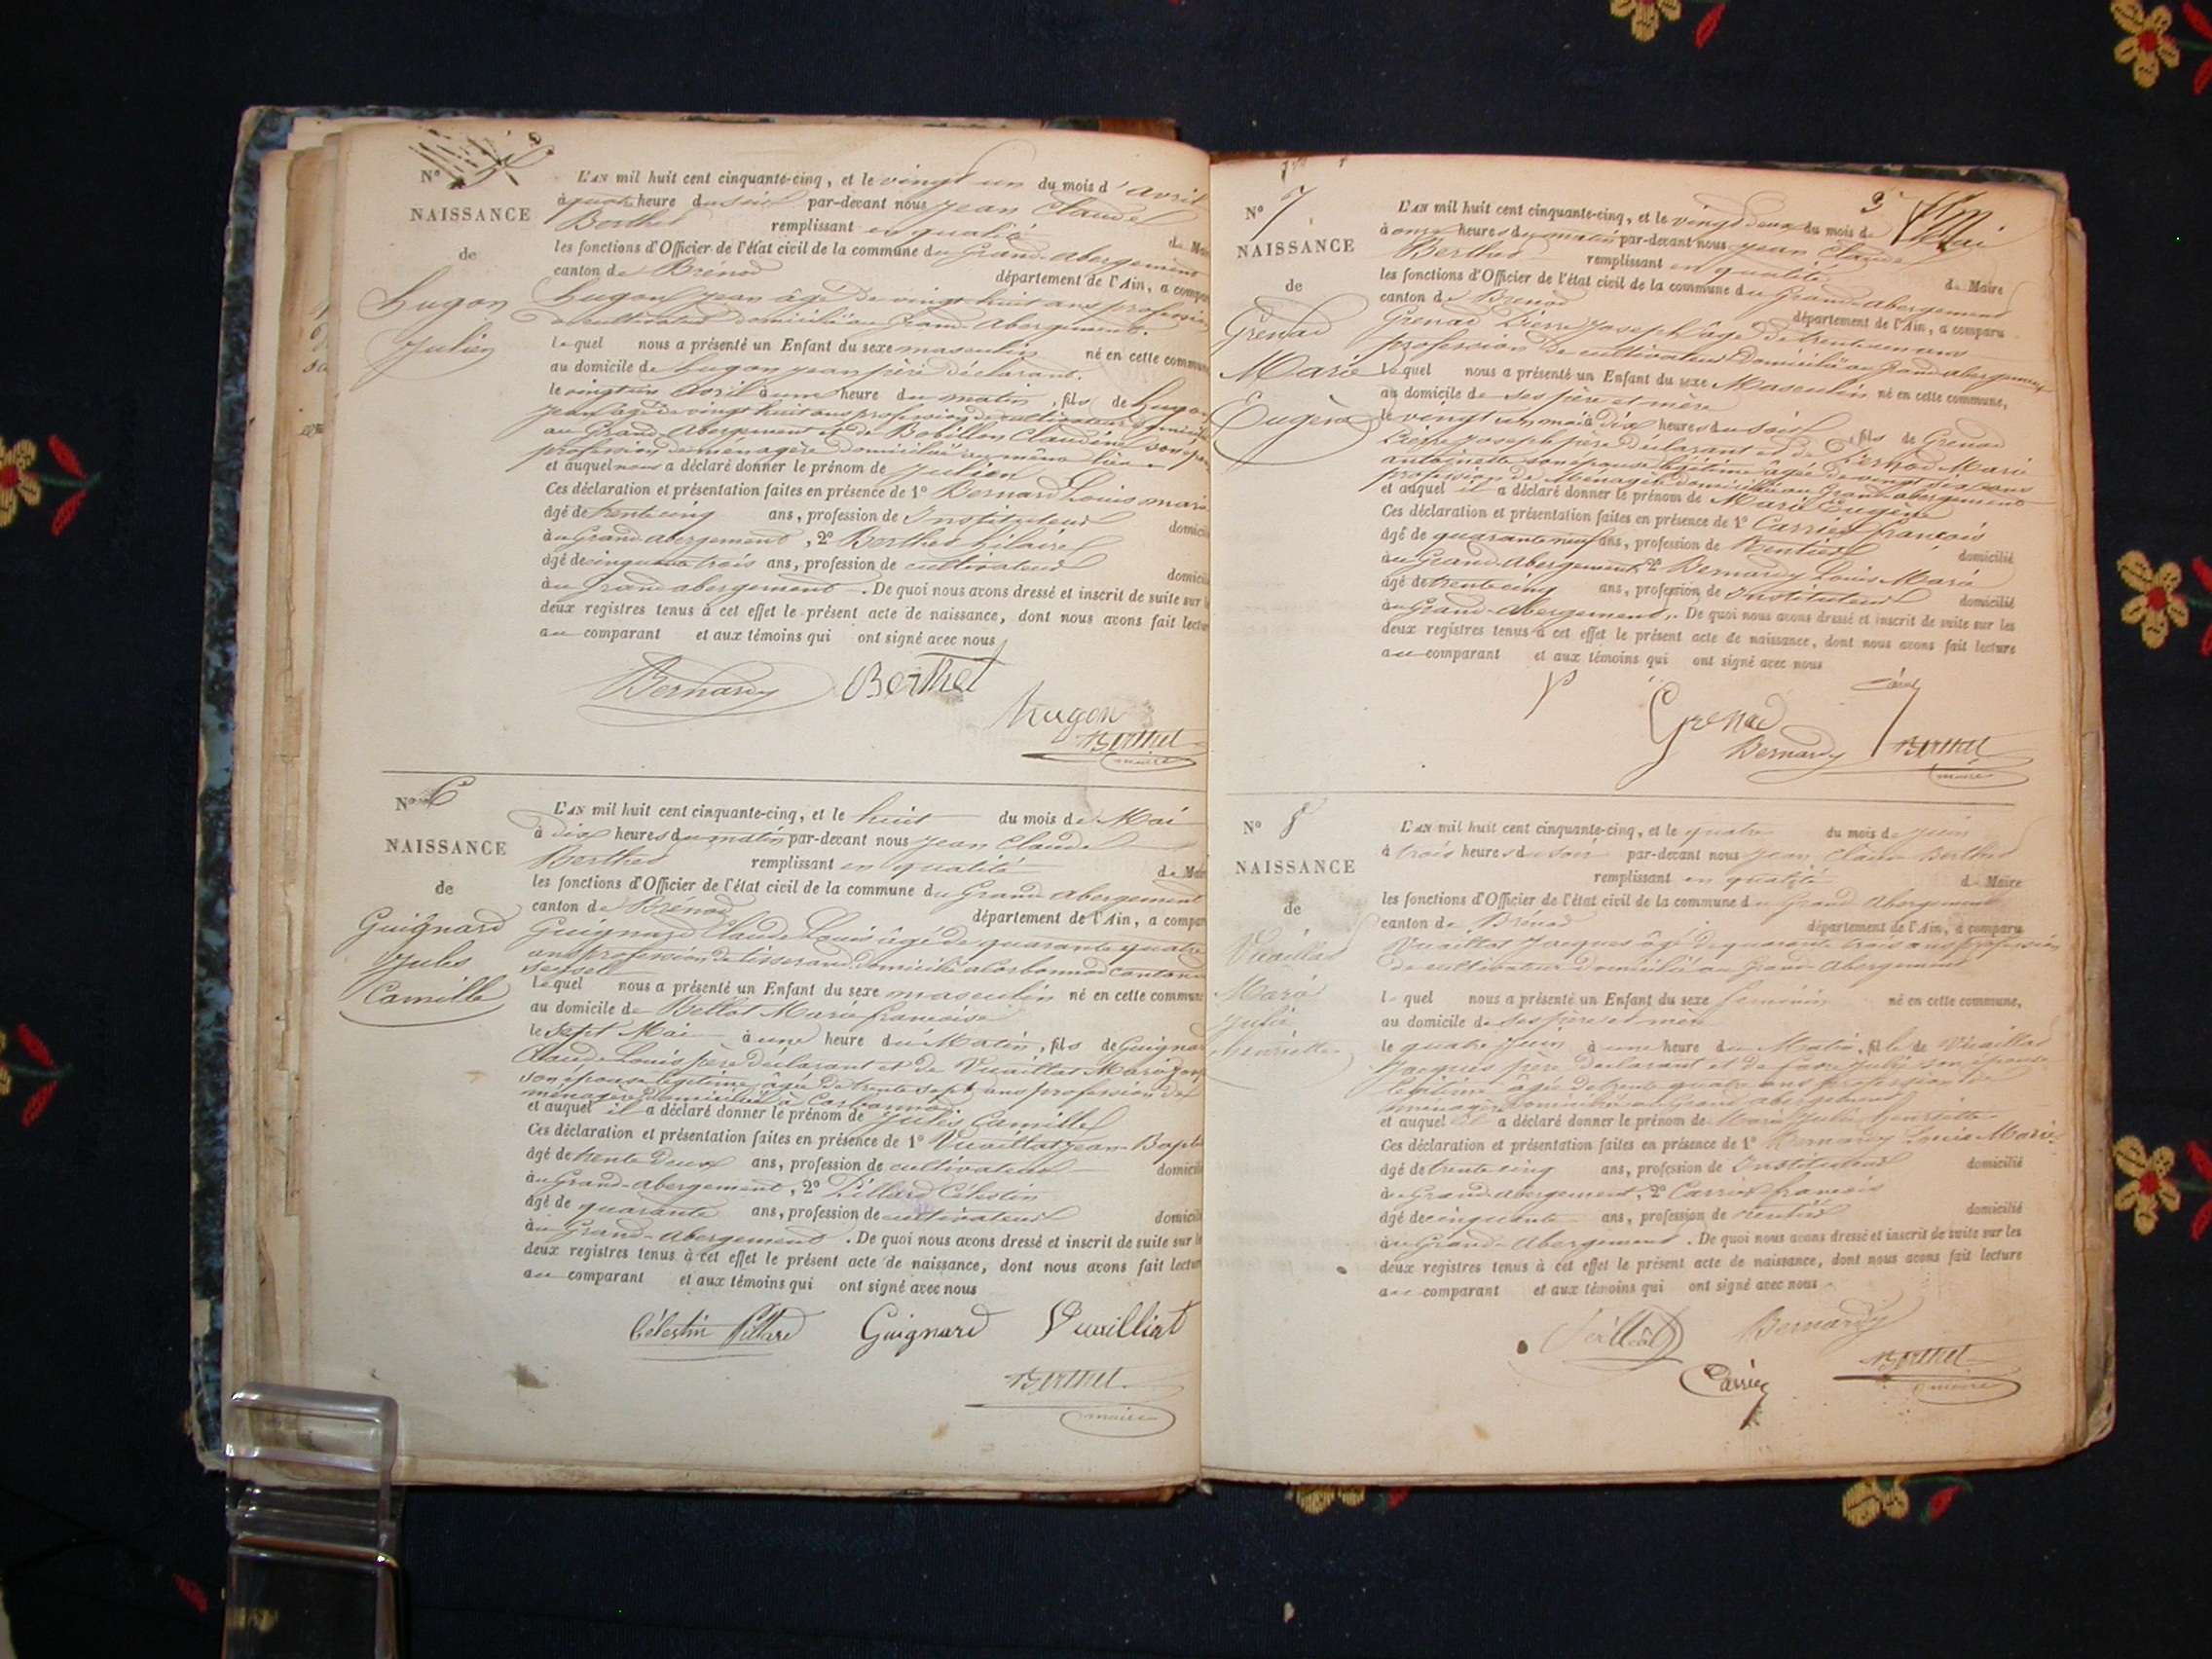 N°
NAISSANCE
de
Hugon
Julien
L'AN mil huit cent cinquante-cinq, et le vingt un du mois d'avril
à quatre heure du soir par-devant nous Jean Claude
Berthet remplissant en qualité de Maire
les fonctions d'Officier de l'état civil de la commune du Grand-Abergement
canton de Brénod département de l'Ain, a compar
Hugon Jean âgé de vingt huit ans profession
de cultivateur domicilié au Grand Abergement.
lequel nous a présenté un Enfant du sexe masculin né en cette commune
au domicile de Hugon Jean père déclarant.
le vingt un Avril à une heure du matin, fils de Hugon
Jean âgé de vingt huit ans profession de cultivateur domicilié
au Grand-Abergement et de Bobillon Claudine son épouse
profession de ménagère domiciliée au même lieu
et auquel nous a déclaré donner le prénom de Julien
Ces déclaration et présentation faites en présence de 1° Bernardy Louis marie
âgé de trente cinq ans, profession de Instituteur domicilié
au Grand abergement, 2° Berthet hilaire
âgé de cinquante trois ans, profession de cultivateur domicilié
au Grand abergement. De quoi nous avons dressé et inscrit de suite sur l
deux registres tenus à cet effet le présent acte de naissance, dont nous avons fait lectur
au comparant et aux témoins qui ont signé avec nous
Bernardy Berthet
Hugon
Berthet
maire
N° 6
NAISSANCE
de
Guignard
Jules
Camille
L'AN mil huit cent cinquante-cinq, et le huit du mois de Mai
à dix heures du matin par-devant nous Jean Claude
Berthet remplissant en qualité de Maire
les fonctions d'Officier de l'état civil de la commune du Grand-abergement
canton de Brénod département de l'Ain, a compar
Guignard Claude Louis âgé de quarante quatre
ans profession de tisserand domicilié à Corbonnod canton de
Seyssel
lequel nous a présenté un Enfant du sexe masculin né en cette commune
au domicile de Bellot Marie françoise
le Sept Mai à une heure du Matin, fils de Guignard
Claude Louis père déclarant et de Vuaillat Marie
son épouse légitime, âgée de trente sept ans profession de
ménagère domiciliée à Corbonnod
et auquel il a déclaré donner le prénom de Jules Camille
Ces déclaration et présentation faites en présence de 1° Vuaillat Jean-Bapti
âgé de trente deux ans, profession de cultivateur domicilié
au Grand-abergement, 2° Pillard Célestin
âgé de quarante ans, profession de cultivateur domicilié
au Grand-abergement. De quoi nous avons dressé et inscrit de suite sur l
deux registres tenus à cet effet le présent acte de naissance, dont nous avons fait lectur
au comparant et aux témoins qui ont signé avec nous
Célestin Pillard Guignard Vuaillat
Berthet
maire
9
N° 7
NAISSANCE
de
Grenad
Marie
Eugène
L'AN mil huit cent cinquante-cinq, et le vingt deux du mois de Mai
à onze heures du matin par-devant nous Jean Claude
Berthet remplissant en qualité de Maire
les fonctions d'Officier de l'état civil de la commune du Grand-abergement
canton de Brénod département de l'Ain, a comparu
Grenad Pierre Joseph âgé de trente un ans
profession de cultivateur domicilié au Grand abergement
lequel nous a présenté un Enfant du sexe Masculin né en cette commune,
au domicile de ses père et mère
le vingt un mai à dix heures du soir, fils de Grenad
Pierre Joseph père déclarant et de Marie
antoinette son épouse légitime âgée de vingt six ans
profession de Ménagère domiciliée au Grand abergement
et auquel il a déclaré donner le prénom de Marie Eugène
Ces déclaration et présentation faites en présence de 1° Carrier françois
âgé de quarante neuf ans, profession de Rentier domicilié
au Grand-abergement, 2° Bernardy Louis Marie
âgé de trente cinq ans, profession de Instituteur domicilié
au Grand-abergement. De quoi nous avons dressé et inscrit de suite sur les
deux registres tenus à cet effet le présent acte de naissance, dont nous avons fait lecture
au comparant et aux témoins qui ont signé avec nous
Grenad
Bernardy Berthet
maire
N° 8
NAISSANCE
de
Vuaillat
Marie
Julie
henriette
L'AN mil huit cent cinquante-cinq, et le quatre du mois de Juin
à trois heures du soir par-devant nous Jean Claude Berthet
remplissant en qualité de Maire
les fonctions d'Officier de l'état civil de la commune du Grand Abergement
canton de Brénod département de l'Ain, a comparu
Vuaillat Jacques âgé de quarante trois ans profession
de cultivateur domicilié au Grand-Abergement
lequel nous a présenté un Enfant du sexe féminin né en cette commune,
au domicile de ses père et mère
le quatre Juin à une heure du Matin, fille de Vuaillat
Jacques père déclarant et de Julie son épouse
légitime âgée de trente quatre ans profession de
ménagère domiciliée au Grand abergement
et auquel il a déclaré donner le prénom de Marie Julie henriette
Ces déclaration et présentation faites en présence de 1° Bernardy Louis Marie
âgé de trente cinq ans, profession de Instituteur domicilié
au Grand abergement, 2° Carrier françois
âgé de cinquante ans, profession de rentier domicilié
au Grand-Abergement. De quoi nous avons dressé et inscrit de suite sur les
deux registres tenus à cet effet le présent acte de naissance, dont nous avons fait lecture
au comparant et aux témoins qui ont signé avec nous
Bernardy
Carrier Berthet
maire